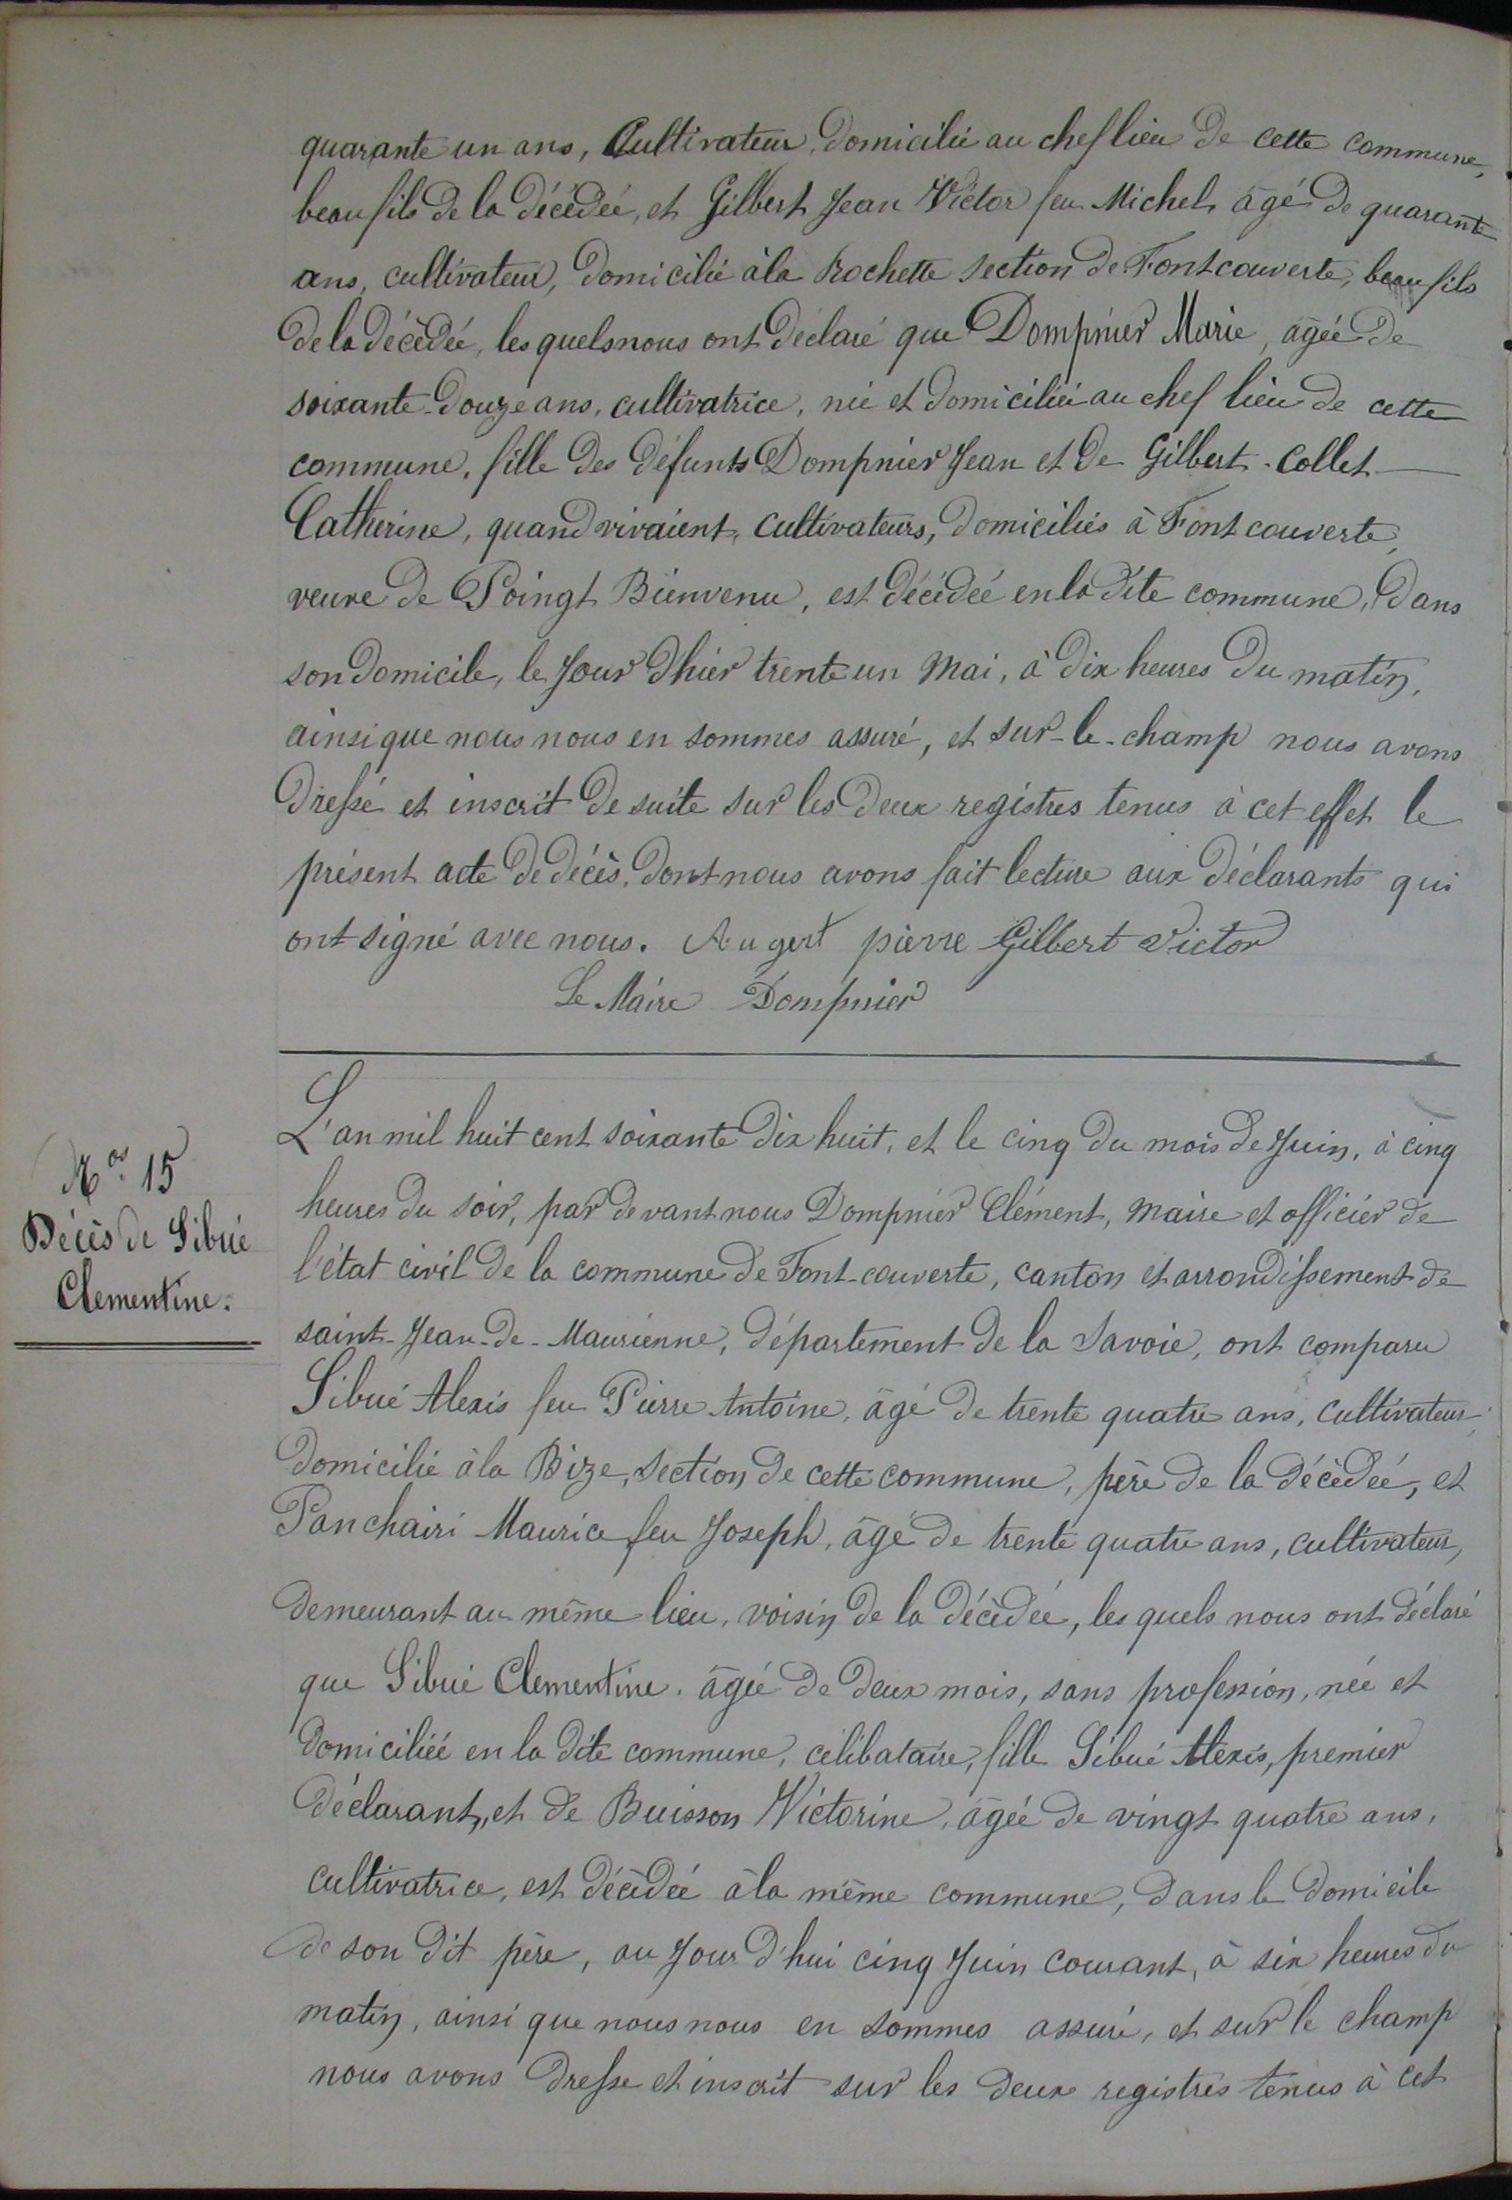 quarante un ans, Cultivateur, domicilié au chef lieu de cette commune,
beau fils de la décédée, et Gilbert Jean Victor feu Michel, âgé de quarante
ans, cultivateur, domicilié à la Rochette section de Fontcouverte, beau fils
de la décédée, les quels nous ont déclaré que Dompnier Marie, âgée de
soixante-douze ans, cultivatrice, née et domiciliée au chef lieu de cette
commune, fille des défunts Dompnier Jean et de Gilbert-Collet
Catherine, quand vivaient, cultivateurs, domiciliés à Fontcouverte,
veuve de Poingt Bienvenu, est décédée en la dite commune, dans
son domicile, le jour d'hier trente un Mai, à dix heures du matin,
ainsi que nous nous en sommes assuré, et sur-le-champ nous avons
dressé et inscrit de suite sur les deux registres tenus à cet effet le
présent acte de décès, dont nous avons fait lecture aux déclarants qui
ont signé avec nous. Augert pierre Gilbert Victor
Le Maire Dompnier
L'an mil huit cent soixante dix huit, et le cinq du mois de Juin, à cinq
Nos 15
Décès de Sibué
Clementine.
heures du soir, par devant nous Dompnier Clément, maire et officier de
l'état civil de la commune de Font-couverte, canton et arrondissement de
saint-Jean-de-Maurienne, département de la Savoie, ont comparu
Sibué Alexis feu Pierre Antoine, âgé de trente quatre ans, cultivateur,
domicilié à la Bize, section de cette commune, père de la décédée, et
Panchairi Maurice feu Joseph, âgé de trente quatre ans, cultivateur,
demeurant au même lieu, voisin de la décédée, les quels nous ont déclaré
que Sibué Clementine, âgée de deux mois, sans profession, née et
domiciliée en la dite commune, célibataire, fille Sibué Alexis, premier
déclarant, et de Buisson Victorine, âgée de vingt quatre ans,
cultivatrice, est décédée à la même commune, dans le domicile
de son dit père, au jour d'hui cinq Juin courant, à six heures du
matin, ainsi que nous nous en sommes assuré, et sur le champ
nous avons dressé et inscrit sur les deux registres tenus à cet